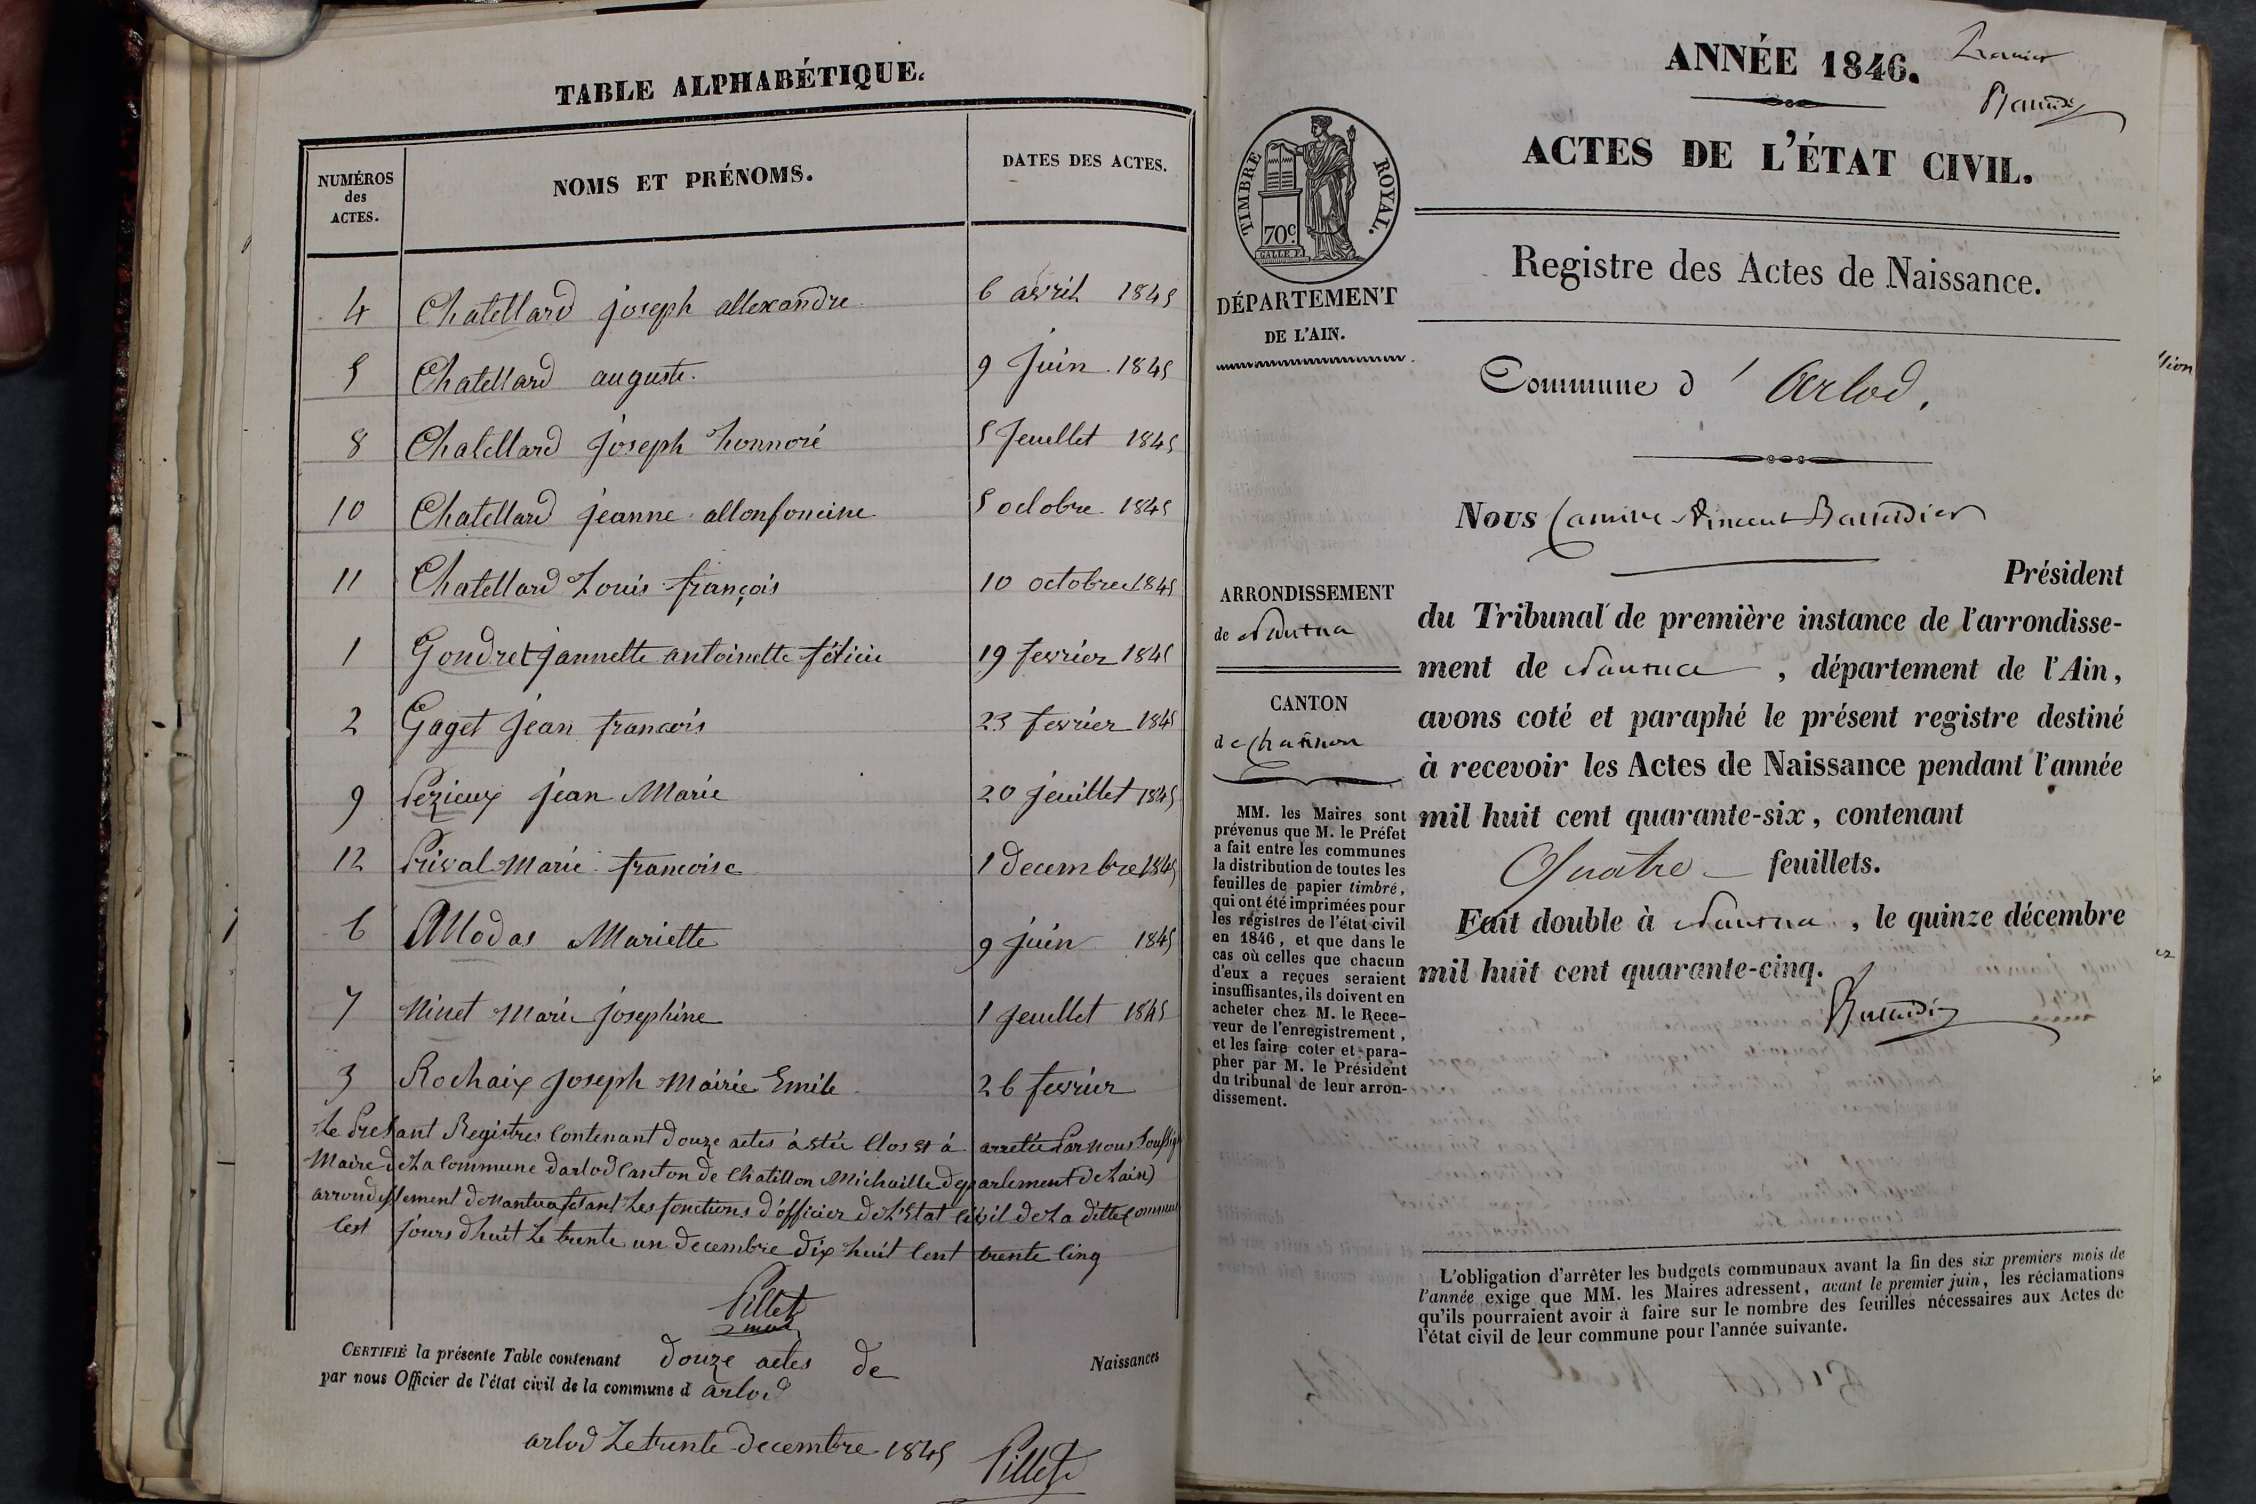 TABLE ALPHABÉTIQUE.
NUMÉROS des ACTES. NOMS ET PRÉNOMS. DATES DES ACTES.
4 Chatellard joseph allexandre 6 avril 1845
5 Chatellard auguste. 9 Juin 1845
8 Chatellard joseph honnoré 5 Jeuillet 1845
10 Chatellard jeanne allonfoncine 5 octobre 1845
11 Chatellard Louis françois 10 octobre 1845
1 Gondret jannette antoinette félicie 19 fevrier 1845
2 Gaget jean francois 23 fevrier 1845
9 Pezieux jean Marie 20 jeuillet 1845
12 Prival Marie francoise 1 decembre 1845
6 Modas Mariette 9 juin 1845
7 Ninet Marie josephine 1 jeuillet 1845
3 Rochaix Joseph Mairie Emile 26 fevrier
Le Presant Registres Contenant Douze actes à stée Clos et à arretée Par nous Soussig
Maire de La Commune darlod Canton de Chatillon Michaille departement de Lain
arrondissement de Nantua fesant Les fonctions d'officier de L'Etat Civil de La ditte Commune
Cest jours dhuit Le trente un decembre dix huit Cent trente Cinq
Pillet
maire
CERTIFIÉ la présente Table contenant douze actes de Naissances
par nous Officier de l'état civil de la commune d arlod
arlod Le trente decembre 1845 Pillet
ANNÉE 1846.
ACTES DE L'ÉTAT CIVIL.
TIMBRE ROYAL.
70c
Registre des Actes de Naissance.
DÉPARTEMENT
DE L'AIN.
Commune d' Arlod.
Nous Camille Vincent Baudier
Président
ARRONDISSEMENT
de Nantua
du Tribunal de première instance de l'arrondisse-
ment de Nantua, département de l'Ain,
avons coté et paraphé le présent registre destiné
à recevoir les Actes de Naissance pendant l'année
mil huit cent quarante-six, contenant
Quatre feuillets.
Fait double à Nantua, le quinze décembre
mil huit cent quarante-cinq.
CANTON
de Chatillon
MM. les Maires sont
prévenus que M. le Préfet
a fait entre les communes
la distribution de toutes les
feuilles de papier timbré,
qui ont été imprimées pour
les régistres de l'état civil
en 1846, et que dans le
cas où celles que chacun
d'eux a reçues seraient
insuffisantes, ils doivent en
acheter chez M. le Rece-
veur de l'enregistrement,
et les faire coter et para-
pher par M. le Président
du tribunal de leur arron-
dissement.
L'obligation d'arrêter les budgets communaux avant la fin des six premiers mois de
l'année exige que MM. les Maires adressent, avant le premier juin, les réclamations
qu'ils pourraient avoir à faire sur le nombre des feuilles nécessaires aux Actes de
l'état civil de leur commune pour l'année suivante.